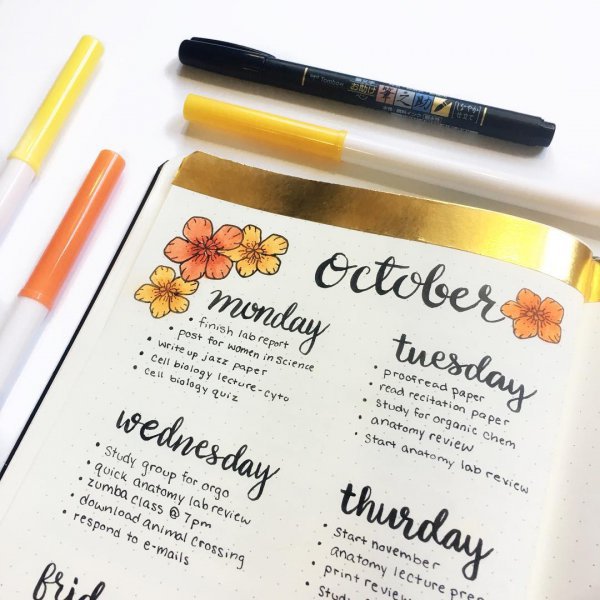 Tombow
お助け
筆之助
しっかり仕立て
october
monday
• finish lab report
• post for women in science
• write up jazz paper
• cell biology lecture-cyto
• cell biology quiz
tuesday
• proofread paper
• read recitation paper
• study for organic chem
• anatomy review
• start anatomy lab review
wednesday
• study group for orgo
• quick anatomy lab review
• zumba class @ 7pm
• download animal crossing
• respond to e-mails
thurday
• start november
• anatomy lecture prep
• print review
• study
frid